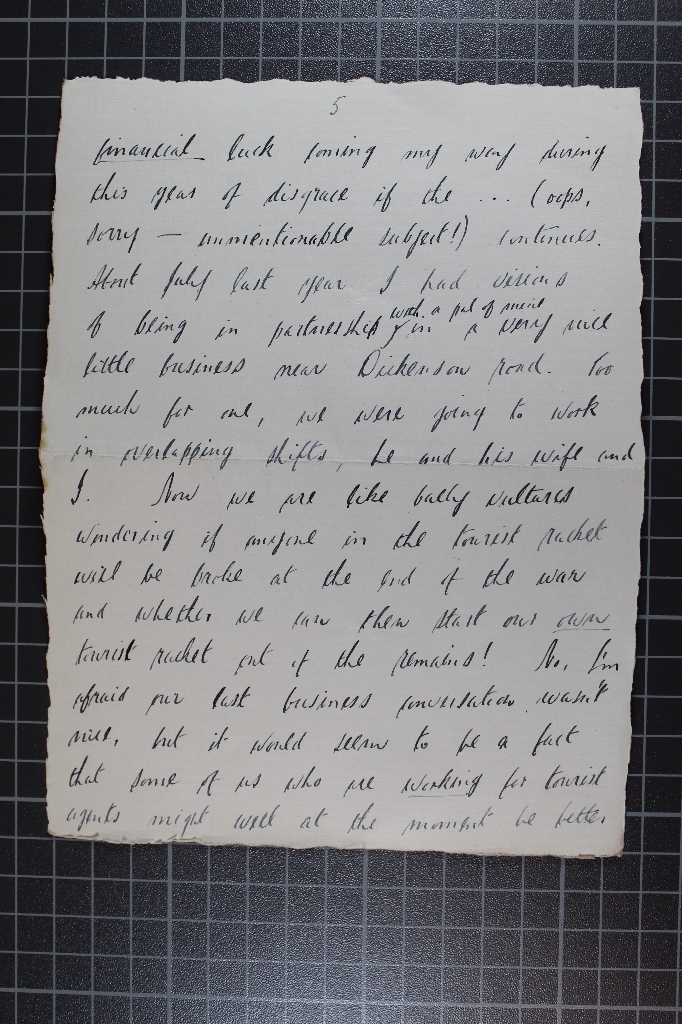 5
financial luck coming my way during
this year of disgrace if the ... (oops,
sorry — unmentionable subject!) continues.
About July last year I had visions
of being in partnership with a pal of mine in a very nice
little business near Dickenson road. Too
much for one, we were going to work
in overlapping shifts, he and his wife and
I. Now we are like bally vultures
wondering if anyone in the tourist racket
will be broke at the end of the war
and whether we can then start our own
tourist racket out of the remains! No, I'm
afraid our last business conversation wasn't
nice, but it would seem to be a fact
that some of us who are working for tourist
agents might well at the moment be better